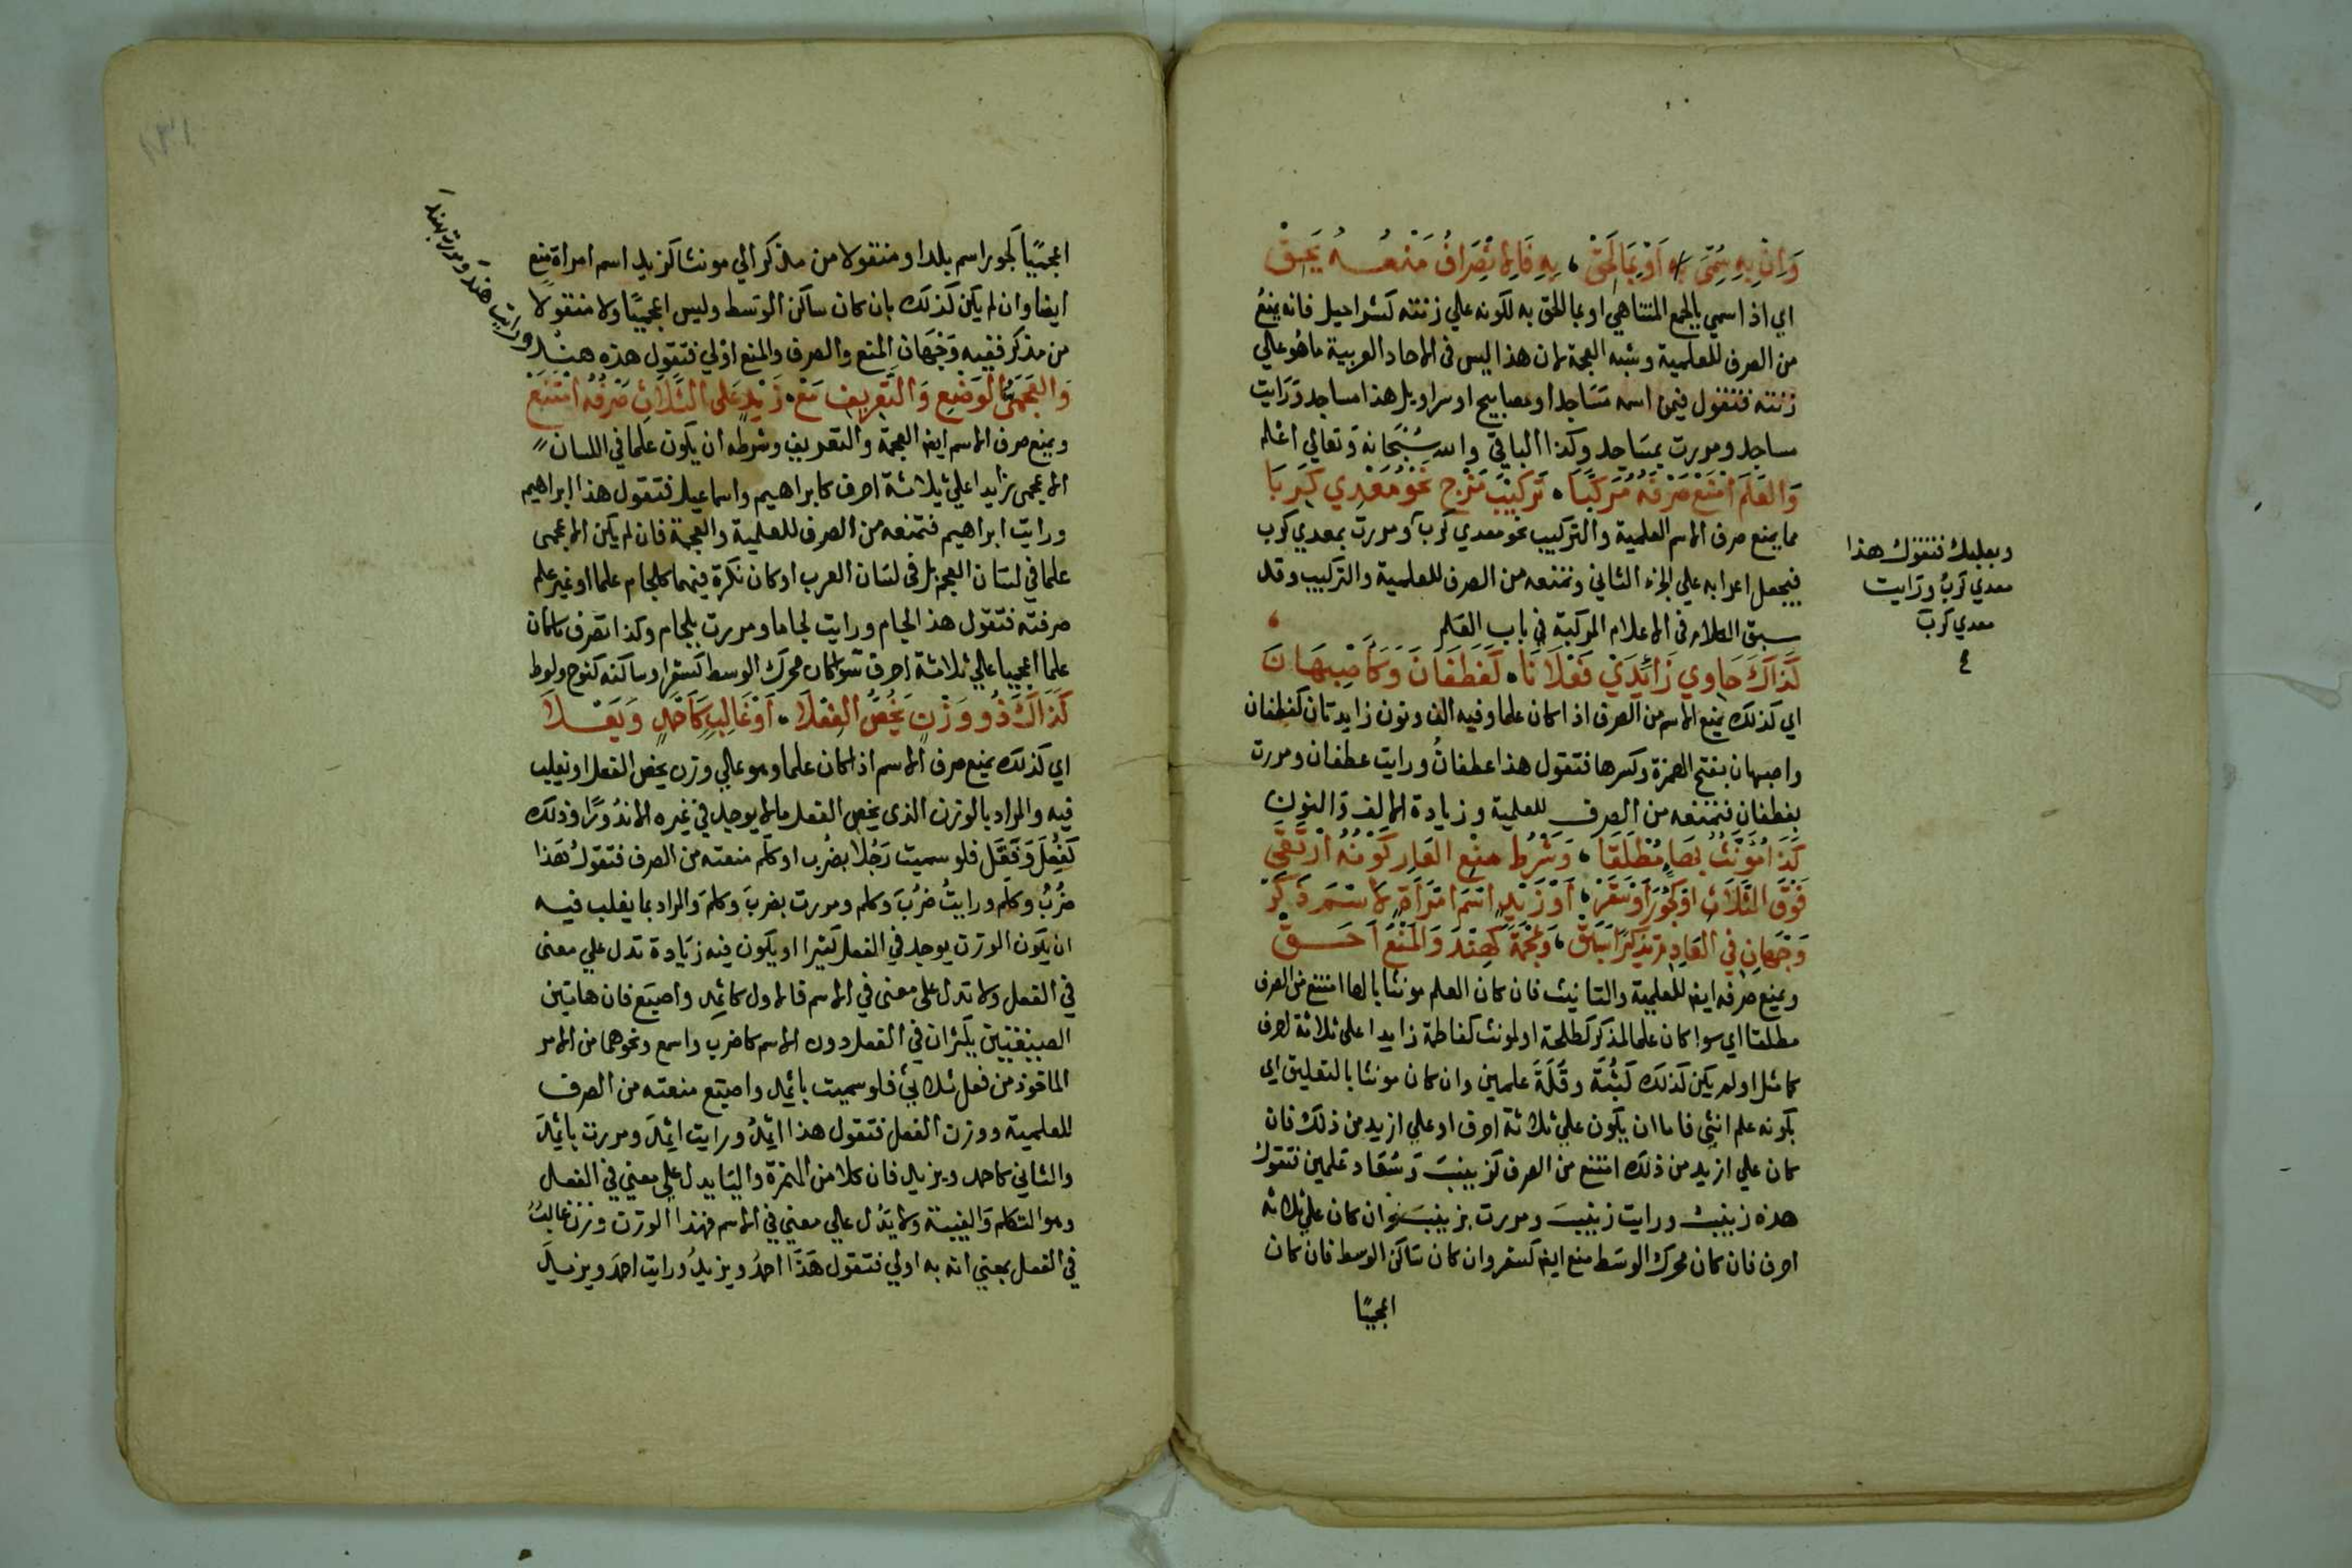 وَاِنْ بِهِ سُمِّيَ اَوْ بِمَا لَحِقْ ، بِهِ فَالاِنْصِرَافُ مَنْعُهُ يَحِقْ
اي اذا سمي بالجمع المتناهي او بما الحق به لكونه علي زنته كشراحيل فانه يمنعُ
من الصرف للعلمية وشبه العجمة لان هذا ليس في الاحاد العربية ما هُو علي
زنته فتقول فيمن اسمه مَسَاجد او مصابيح او سراويل هذا مساجد وَرَايت
مساجد ومررت بمسَاجد وكذا الباقي والله سُبْحَانهُ وَتعالي اعْلم
وَالعَلَمَ امْنَعْ صَرْفَهُ مُرَكَّبًا ، تَرْكِيْبَ مَزْجٍ نَحْوُ مَعْدِي كَرِبَا
مما يمنع صرف الاسم العلمية والتركيب نحو معدي كربَ ومررت بمعدي كرب
فيجعل اعرابه علي الجزء الثاني وتمنعه من الصرف للعلمية والتركيب وقد
سبق الكلام في الاعلام المركبة في باب العَلم
كَذَاكَ حَاوِي زَائِدَيْ فَعْلَانَا ، كَغَطَفَانَ وَكَاَصْبِهَانَ
اي كذلك يمنع الاسم من الصرف اذا كان علما وفيه الف ونون زايدتان كغطفان
واصبهان بفتح الهمزة وكسرها فتقول هذا غطفانُ ورايت غطفان ومررت
بغطفان فتمنعه من الصرف للعلمية وزيادة الالف وَالنون
كَذَا مُؤَنَّثٌ بِهَاءٍ مُطْلَقَا ، وَشَرْطُ مَنْعِ العَارِ كَوْنُهُ ارْتَقَى
فَوْقَ الثَّلَاثِ اَوْ كَجُوْرَ اَوْ سَقَرْ ، اَوْ زَيْدٍ اسْمَ امْرَأَةٍ لَا اسْمَ ذَكَرْ
وَجْهَانِ فِي العَادِمِ تَذْكِيْرًا سَبَقْ ، وَعُجْمَةً كَهِنْدَ وَالمَنْعُ اَحَقْ
ويمنع صرفه ايضا للعلمية والتانيث فان كان العلم مونثا بالها امتنع من الصرف
مطلقا اي سوا كان علما لمذكر كطلحة او لمونث كفاطمة زايدا علي ثلاثة احرف
كما مثل او لم يكن كذلك كَثُبَة وقُلَة علمين وان كان مونثا بالتعليق اي
بكونه علم انثي فاما ان يكون علي ثلاثة احرف او علي ازيد من ذلك فان
كان علي ازيد من ذلك امتنع من الصرف كزينبَ وَسُعَاد عَلمين فتقول
هذه زينبُ ورايت زينبَ ومررت بزينبَ وان كان علي ثلاثه
احرف فان كان محرك الوسَط منع ايضا كسقر وان كان سَاكن الوسط فان كان
اعجميًا
وبعلبك فتقول هذا
معدي كربُ ورَايت
معدي كربَ
اعجميًا كجور اسم بلد او منقولا من مذكر الي مونث كزيد اسم امراة منع
ايضا وان لم يكن كذلك بان كان ساكن الوسَط وليس اعجميًا ولا منقولا
من مذكر ففيه وَجْهَانِ المنع والصرف والمنع اوْلي فتقول هذه هنْدُ
ورايت هندا ومررت بهند
وَالعَجَمِيُّ الوَضْعِ وَالتَّعْرِيْفِ مَعْ ، زَيْدٍ عَلَى الثَّلَاثِ صَرْفُهُ امْتَنَعْ
ويمنع صرف الاسم ايضا العجمة والتعريف وشرطه ان يكون علما في اللسان
الاعجمى زايدا علي ثلاثة احرف كابراهيم واسماعيل فتقول هذا ابراهيم
ورايت ابراهيم فتمنعه من الصرف للعلمية والعجمة فان لم يكن الاعجمى
علما في لسَان العجم بل في لسَان العرب او كان نكرة فيهما كلجام علما او غير علم
صرفته فتقول هذا لجام ورايت لجاما ومررت بلجام وكذا تصرف ما كان
علما اعجميا علي ثلاثة احرف سَوا كان محرك الوسط كشتر او ساكنه كنوح ولوط
كَذَاكَ ذُو وَزْنٍ يَخُصُّ الفِعْلَا ، اَوْ غَالِبٍ كَاَحْمَدٍ وَيَعْلَا
اي كذلك يمنع صرف الاسم اذا كان علما وهو علي وزن يخص الفعل او يغلب
فيه والمراد بالوزن الذى يخص الفعل ما لا يوجد في غيره الا ندُورًا وذلك
كَفُعِلَ وَفَعَّلَ فلو سميت رَجُلا بضُرب او كلم منعته من الصرف فتقولُ هَذا
ضُرِبُ وكلم ورايتُ ضُرِبَ وكلم ومررت بضربَ وكلمَ وَالمراد بما يغلب فيه
ان يكون الوزن يوجد في الفعل كثيرا او يكون فيه زيَادة تدل علي معنى
في الفعل ولا تدل على معنى في الاسم فالاول كاثمد واصبع فان هاتين
الصيغتين يكثران في الفعل دون الاسم كاضرب واسمع ونحوهما من الامر
الماخوذ من فعل ثلاثي فلو سميت باثمد واصبع منعته من الصرف
للعلمية ووزن الفعل فتقول هذا اثمدُ ورايت اثمدَ ومررت باثمدَ
والثاني كاحمد ويزيد فان كلا من الهمزة واليَا يدل علي معني في الفعل
وهو التكلم وَالغيبة ولا يَدُل علي معني في الاسم فهذا الوزن وزن غالبُ
في الفعل بمعني انه به اولي فتقول هَذَا احمدُ ويزيدُ ورايت احمدَ ويزيدَ